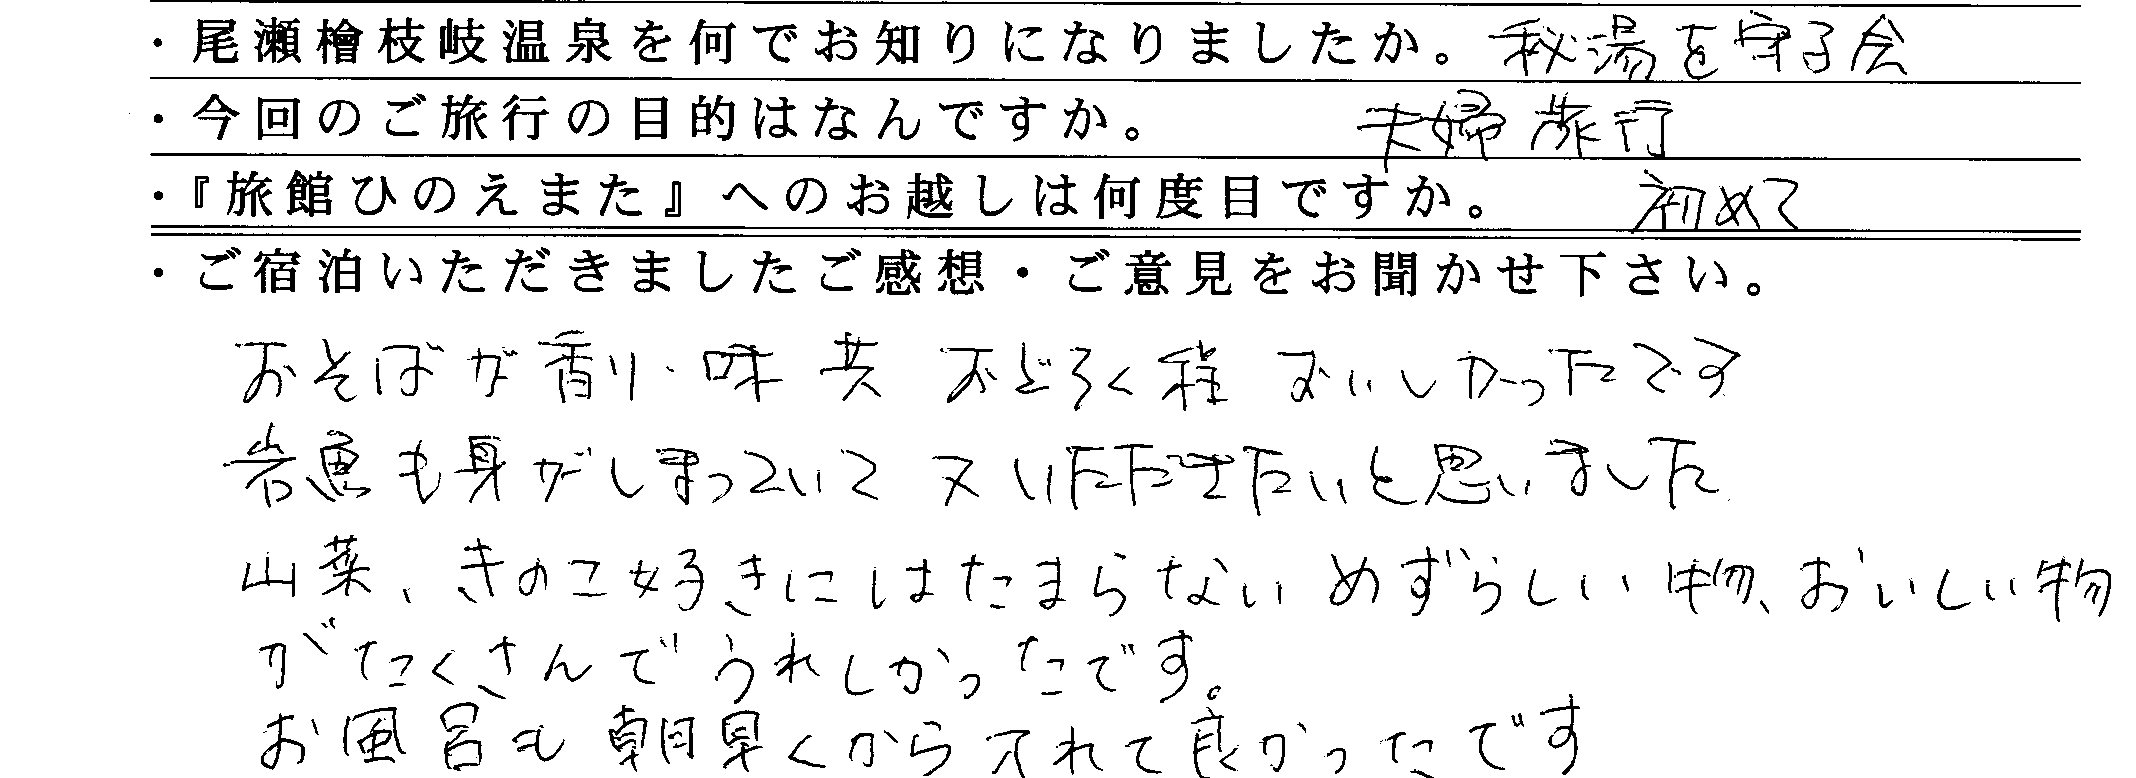 ・尾瀬檜枝岐温泉を何でお知りになりましたか。 秘湯を守る会
・今回のご旅行の目的はなんですか。 夫婦旅行
・『旅館ひのえまた』へのお越しは何度目ですか。 初めて
・ご宿泊いただきましたご感想・ご意見をお聞かせ下さい。
おそばが香り・味共おどろく程おいしかったです
岩魚も身がしまっていて又いただきたいと思いました
山菜、きのこ好きにはたまらないめずらしい物、おいしい物
がたくさんでうれしかったです。
お風呂も朝早くから入れて良かったです